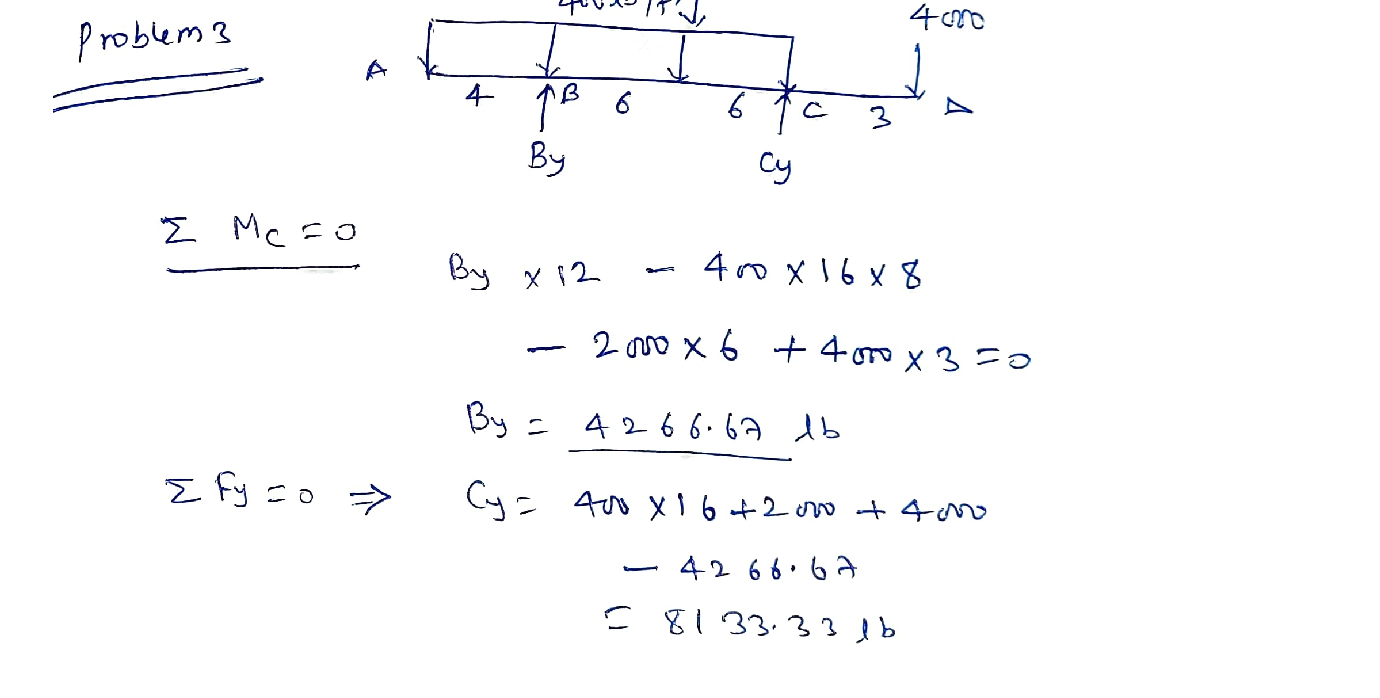 4000
Problem 3
A
4 B 6 6 C 3 D
By Cy
Σ Mc = 0
By × 12 - 400 × 16 × 8
- 2000 × 6 + 4000 × 3 = 0
By = 4266.67 lb
Σ Fy = 0 ⇒ Cy = 400 × 16 + 2000 + 4000
- 4266.67
= 8133.33 lb